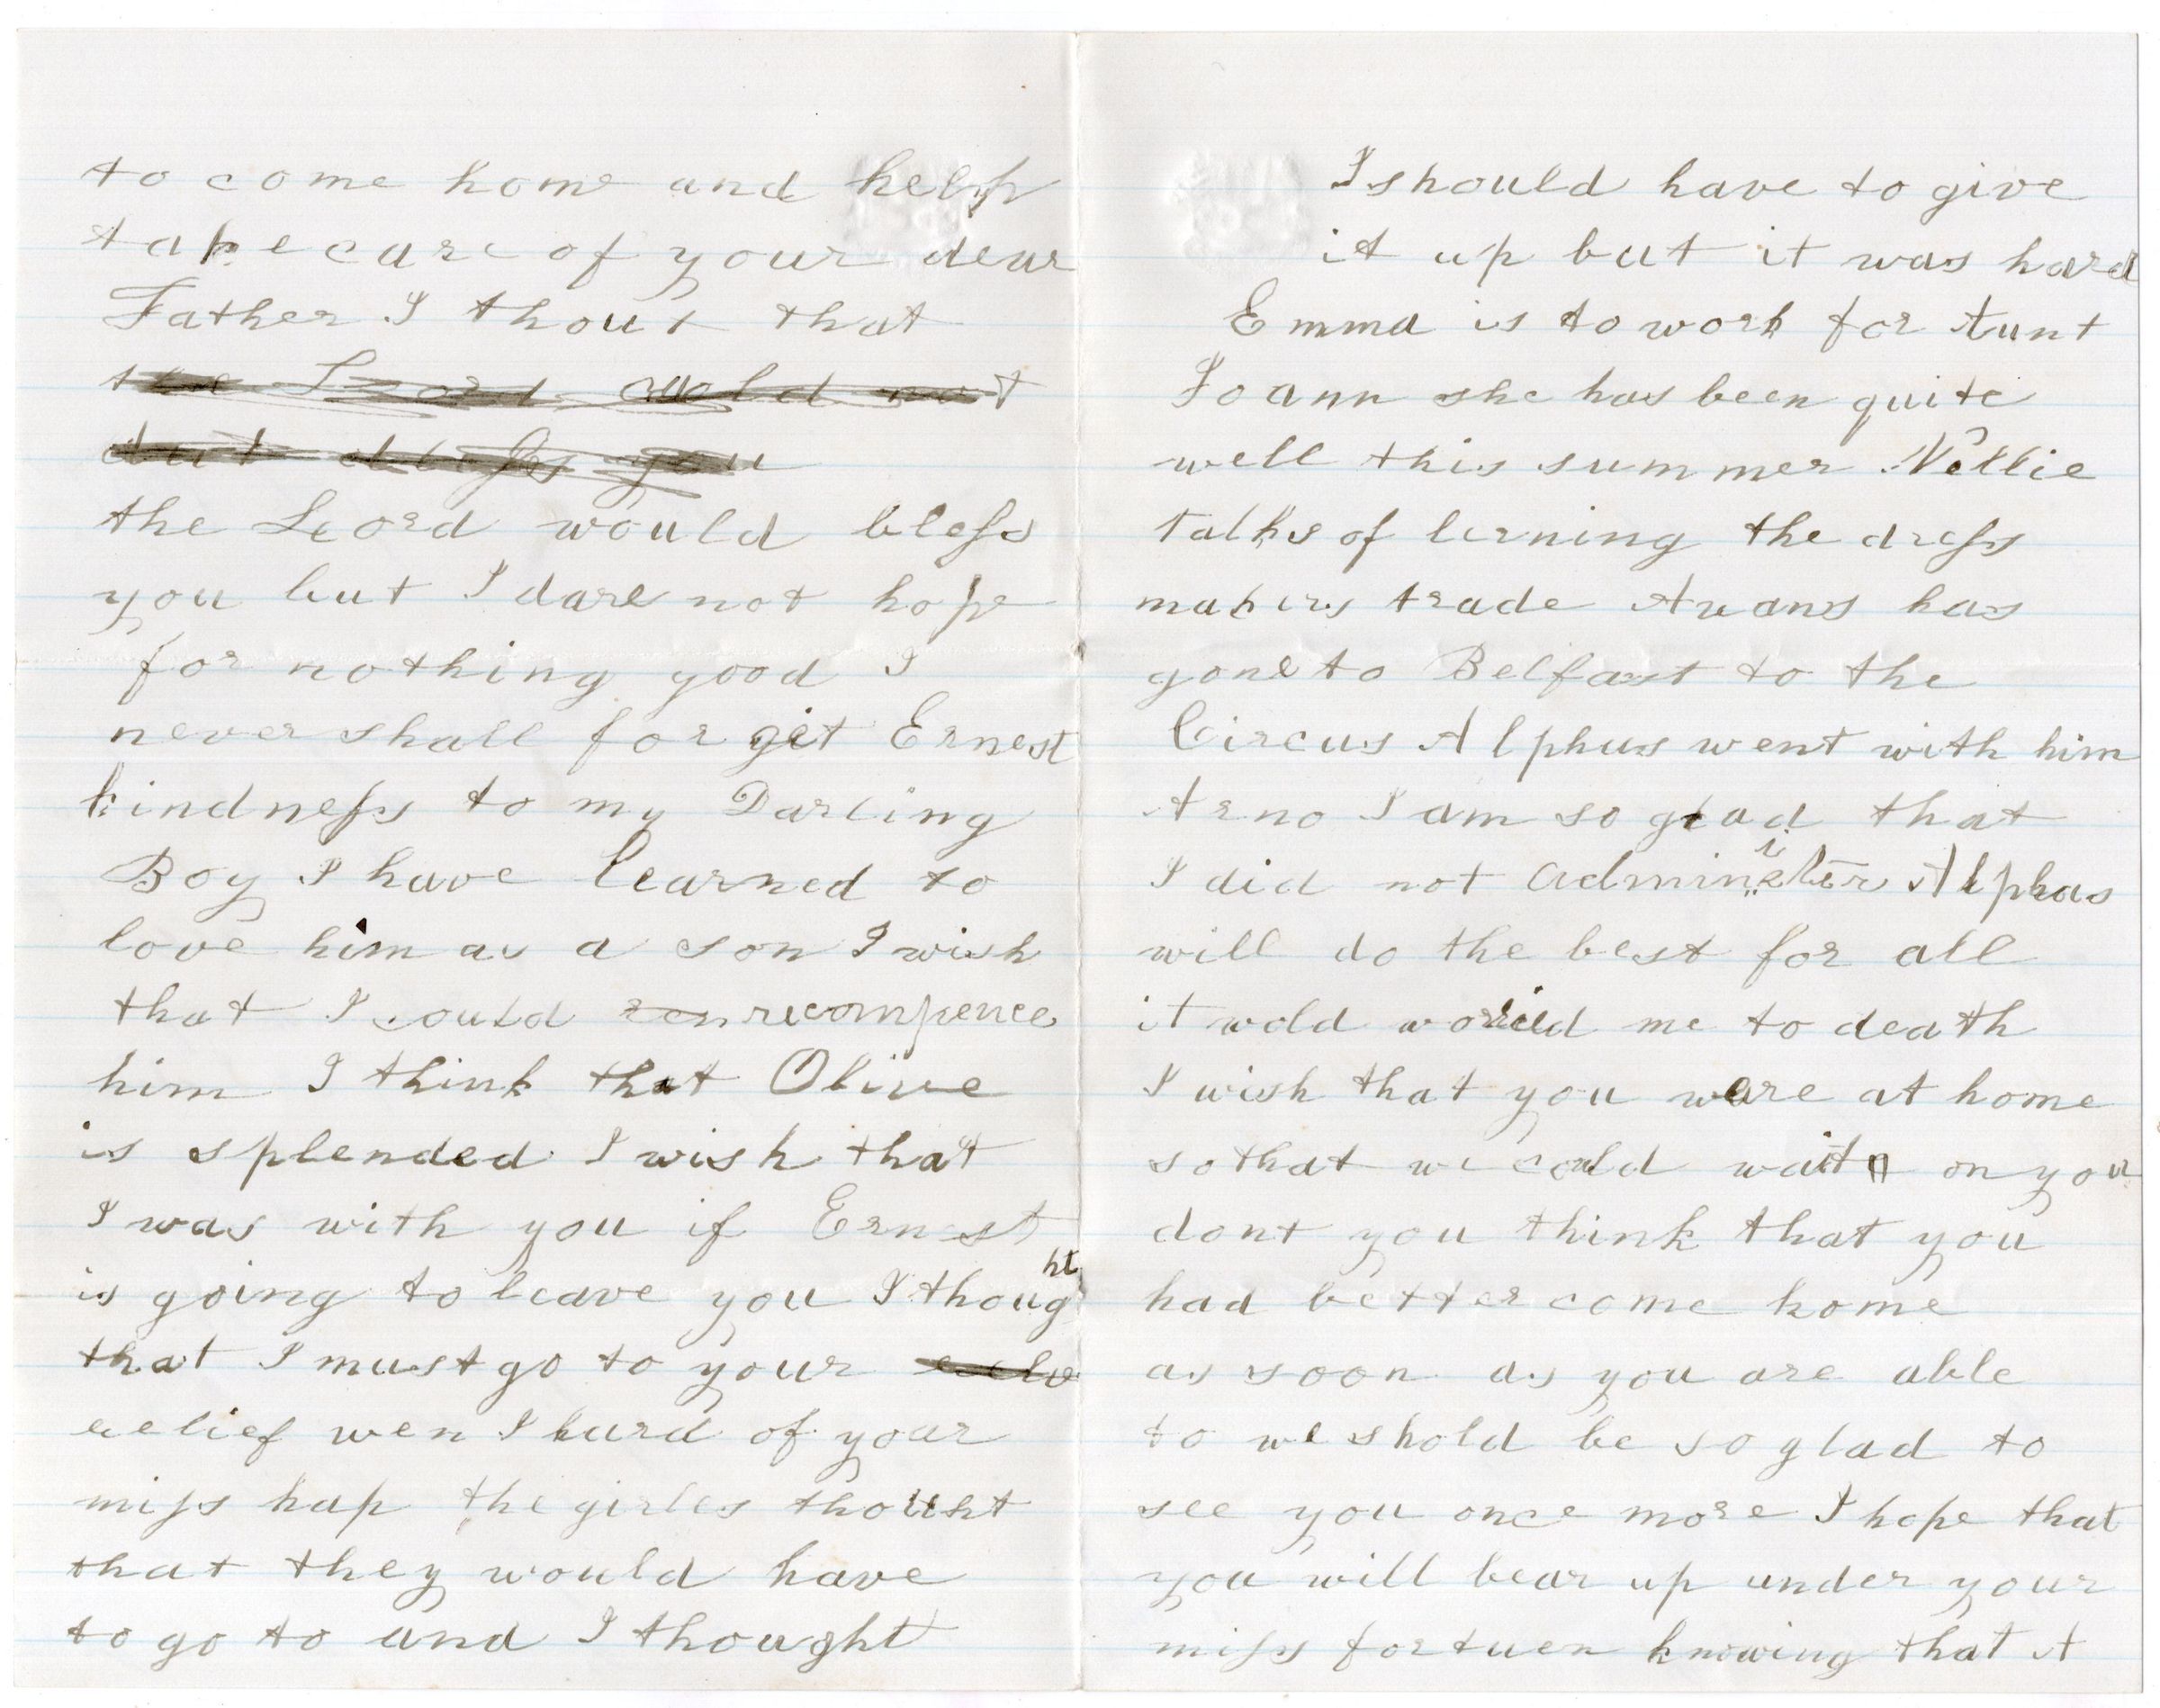 to come home and help
take care of your dear
Father I thout that
the Leord could not
but bless you
the Leord would bless
you but I dare not hope
for nothing good I
never shall for git Ernest
kindness to my Darling
Boy I have learned to
love him as a son I wish
that I could recompence
him I think that Olive
is splended I wish that
I was with you if Ernst
is going to leave you I thought
that I must go to your
relief wen I hurd of your
miss hap the girles thouht
that they would have
to go to and I thought
I should have to give
it up but it was hard
Emma is to work for Aunt
Joann she has been quite
well this summer Nellie
talks of lerning the dress
makers trade Avans has
gone to Belfast to the
Circus Alphus went with him
Arno I am so glad that
I did not administer Alphas
will do the best for all
it wold woried me to death
I wish that you ware at home
so that we could wait on you
dont you think that you
had better come home
as soon as you are able
to we shold be so glad to
see you once more I hope that
you will bear up under your
miss fortuen knowing that A